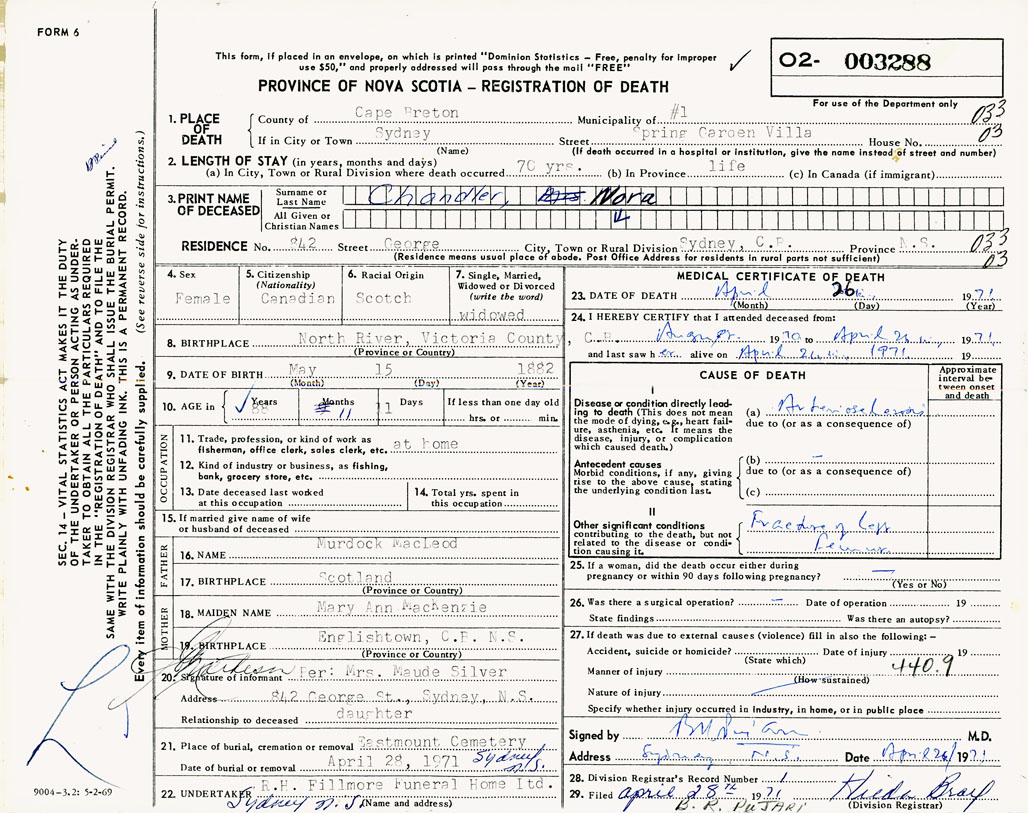 FORM 6
This form, if placed in an envelope, on which is printed "Dominion Statistics – Free, penalty for improper
use $50," and properly addressed will pass through the mail "FREE"
✓
O2- 003288
PROVINCE OF NOVA SCOTIA – REGISTRATION OF DEATH
For use of the Department only
1. PLACE OF DEATH
County of Cape Breton Municipality of #1 033
If in City or Town Sydney Street Spring Garden Villa House No. 03
(Name) (If death occurred in a hospital or institution, give the name instead of street and number)
2. LENGTH OF STAY (in years, months and days)
(a) In City, Town or Rural Division where death occurred 70 yrs. (b) In Province life (c) In Canada (if immigrant)
3. PRINT NAME OF DECEASED
Surname or Last Name Chandler, Nora
All Given or Christian Names
RESIDENCE No. 842 Street George City, Town or Rural Division Sydney, C.B. Province N.S. 033
(Residence means usual place of abode. Post Office Address for residents in rural parts not sufficient) 03
4. Sex
Female
5. Citizenship
(Nationality)
Canadian
6. Racial Origin
Scotch
7. Single, Married,
Widowed or Divorced
(write the word)
widowed
8. BIRTHPLACE North River, Victoria County, C.B.
(Province or Country)
9. DATE OF BIRTH May 15 1882
(Month) (Day) (Year)
10. AGE in ✓ Years 88 Months 11 Days 11 If less than one day old
hrs. or min.
OCCUPATION
11. Trade, profession, or kind of work as
fisherman, office clerk, sales clerk, etc. at home
12. Kind of industry or business, as fishing,
bank, grocery store, etc.
13. Date deceased last worked
at this occupation
14. Total yrs. spent in
this occupation
15. If married give name of wife
or husband of deceased
FATHER
16. NAME Murdock MacLeod
17. BIRTHPLACE Scotland
(Province or Country)
MOTHER
18. MAIDEN NAME Mary Ann MacKenzie
19. BIRTHPLACE Englishtown, C.B. N.S.
(Province or Country)
20. Signature of informant Per: Mrs. Maude Silver
Address 842 George St., Sydney, N.S.
Relationship to deceased daughter
21. Place of burial, cremation or removal Eastmount Cemetery
Date of burial or removal April 28, 1971 Sydney N.S.
22. UNDERTAKER R.H. Fillmore Funeral Home ltd.
Sydney N.S. (Name and address)
MEDICAL CERTIFICATE OF DEATH
23. DATE OF DEATH April 26 1971
(Month) (Day) (Year)
24. I HEREBY CERTIFY that I attended deceased from:
August 1970 to April 1971
and last saw her alive on April 1971 19
CAUSE OF DEATH
Approximate
interval be-
tween onset
and death
I
Disease or condition directly lead-
ing to death (This does not mean
the mode of dying, e.g., heart fail-
ure, asthenia, etc. It means the
disease, injury, or complication
which caused death.)
(a) Arteriosclerosis
due to (or as a consequence of)
Antecedent causes
Morbid conditions, if any, giving
rise to the above cause, stating
the underlying condition last.
(b) –
due to (or as a consequence of)
(c)
II
Other significant conditions
contributing to the death, but not
related to the disease or condi-
tion causing it.
Fracture of Left
Femur
25. If a woman, did the death occur either during
pregnancy or within 90 days following pregnancy? —
(Yes or No)
26. Was there a surgical operation? – Date of operation 19
State findings Was there an autopsy?
27. If death was due to external causes (violence) fill in also the following: –
Accident, suicide or homicide? Date of injury 19
(State which)
Manner of injury 440.9
(How sustained)
Nature of injury
Specify whether injury occurred in industry, in home, or in public place
Signed by M.D.
Address Sydney, N.S. Date April 26/1971
28. Division Registrar's Record Number 1
29. Filed april 28th 1971 Hilda Bray
B. R. PUJARI (Division Registrar)
SEC. 14 – VITAL STATISTICS ACT MAKES IT THE DUTY
OF THE UNDERTAKER OR PERSON ACTING AS UNDER-
TAKER TO OBTAIN ALL THE PARTICULARS REQUIRED
IN THE "REGISTRATION OF DEATH" AND TO FILE THE
SAME WITH THE DIVISION REGISTRAR WHO SHALL ISSUE THE BURIAL PERMIT.
WRITE PLAINLY WITH UNFADING INK. THIS IS A PERMANENT RECORD.
Every item of information should be carefully supplied. (See reverse side for instructions.)
9004-3.2: 5-2-69